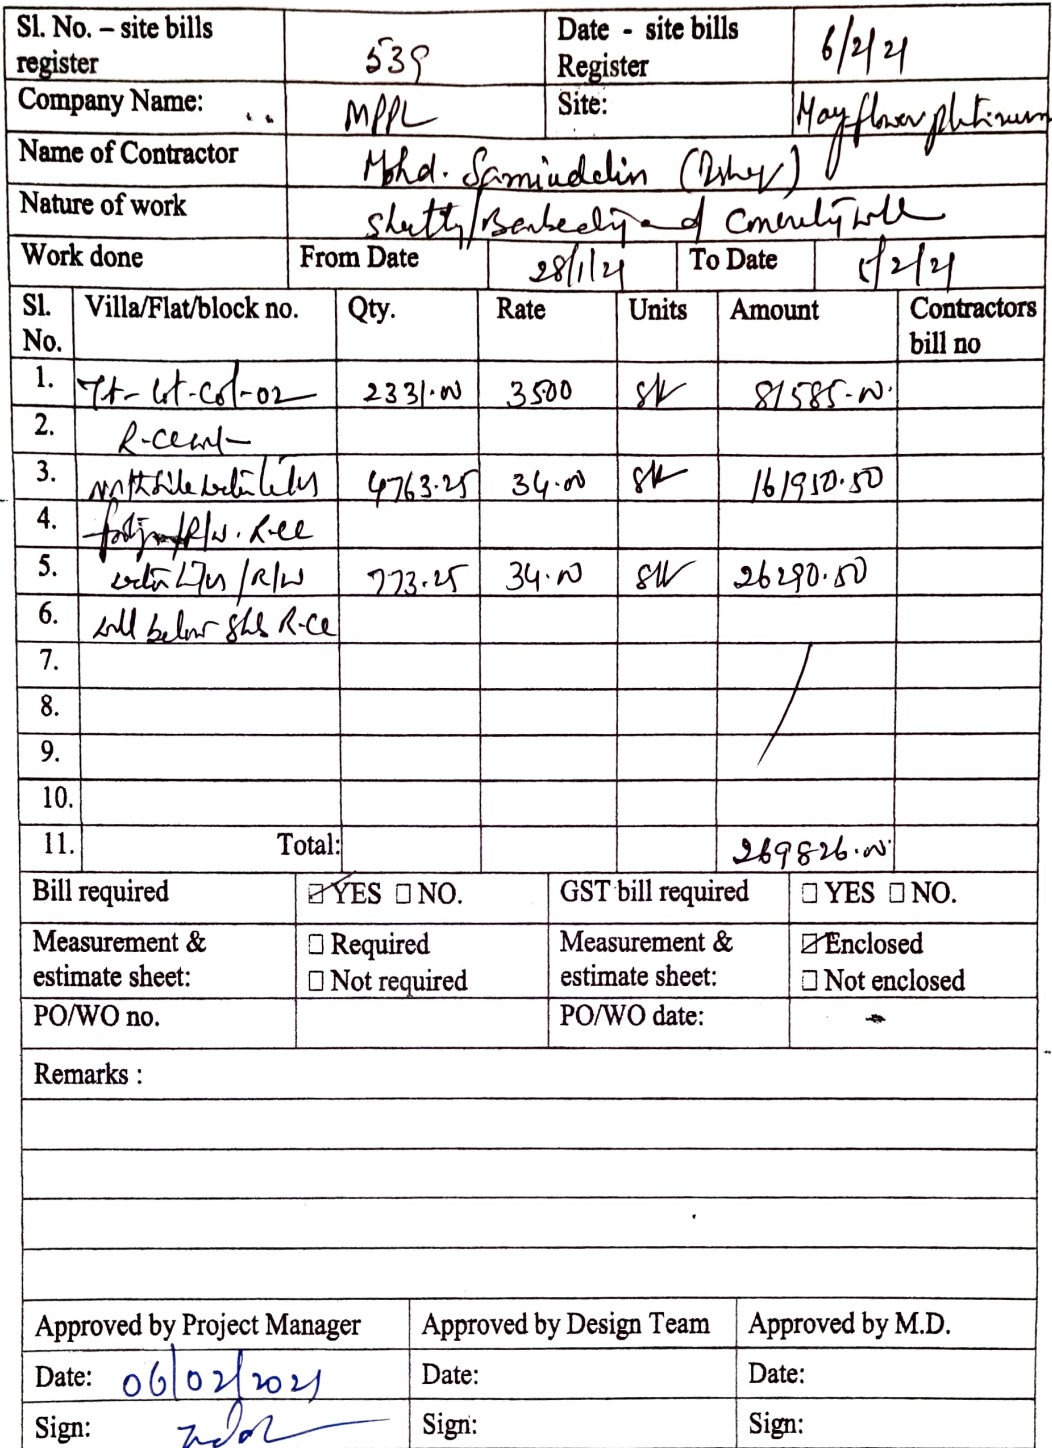 Sl. No. – site bills register 539 Date - site bills Register 6/2/21
Company Name: MPPL Site: Mayflower platinum
Name of Contractor Mohd. Samiuddin
Nature of work and
Work done From Date 28/1/21 To Date 5/2/21
Sl. No. Villa/Flat/block no. Qty. Rate Units Amount Contractors bill no
1. 2331.00 3500 81585.00
2.
3. 4763.25 34.00 161950.50
4. R/W.
5. /R/W 773.25 34.00 26290.50
6. below
7.
8.
9.
10.
11. Total: 269826.00
Bill required ☑ YES ☐ NO. GST bill required ☐ YES ☐ NO.
Measurement & estimate sheet: ☐ Required ☐ Not required Measurement & estimate sheet: ☑ Enclosed ☐ Not enclosed
PO/WO no. PO/WO date:
Remarks :
Approved by Project Manager Approved by Design Team Approved by M.D.
Date: 06/02/2021 Date: Date:
Sign: Sign: Sign: